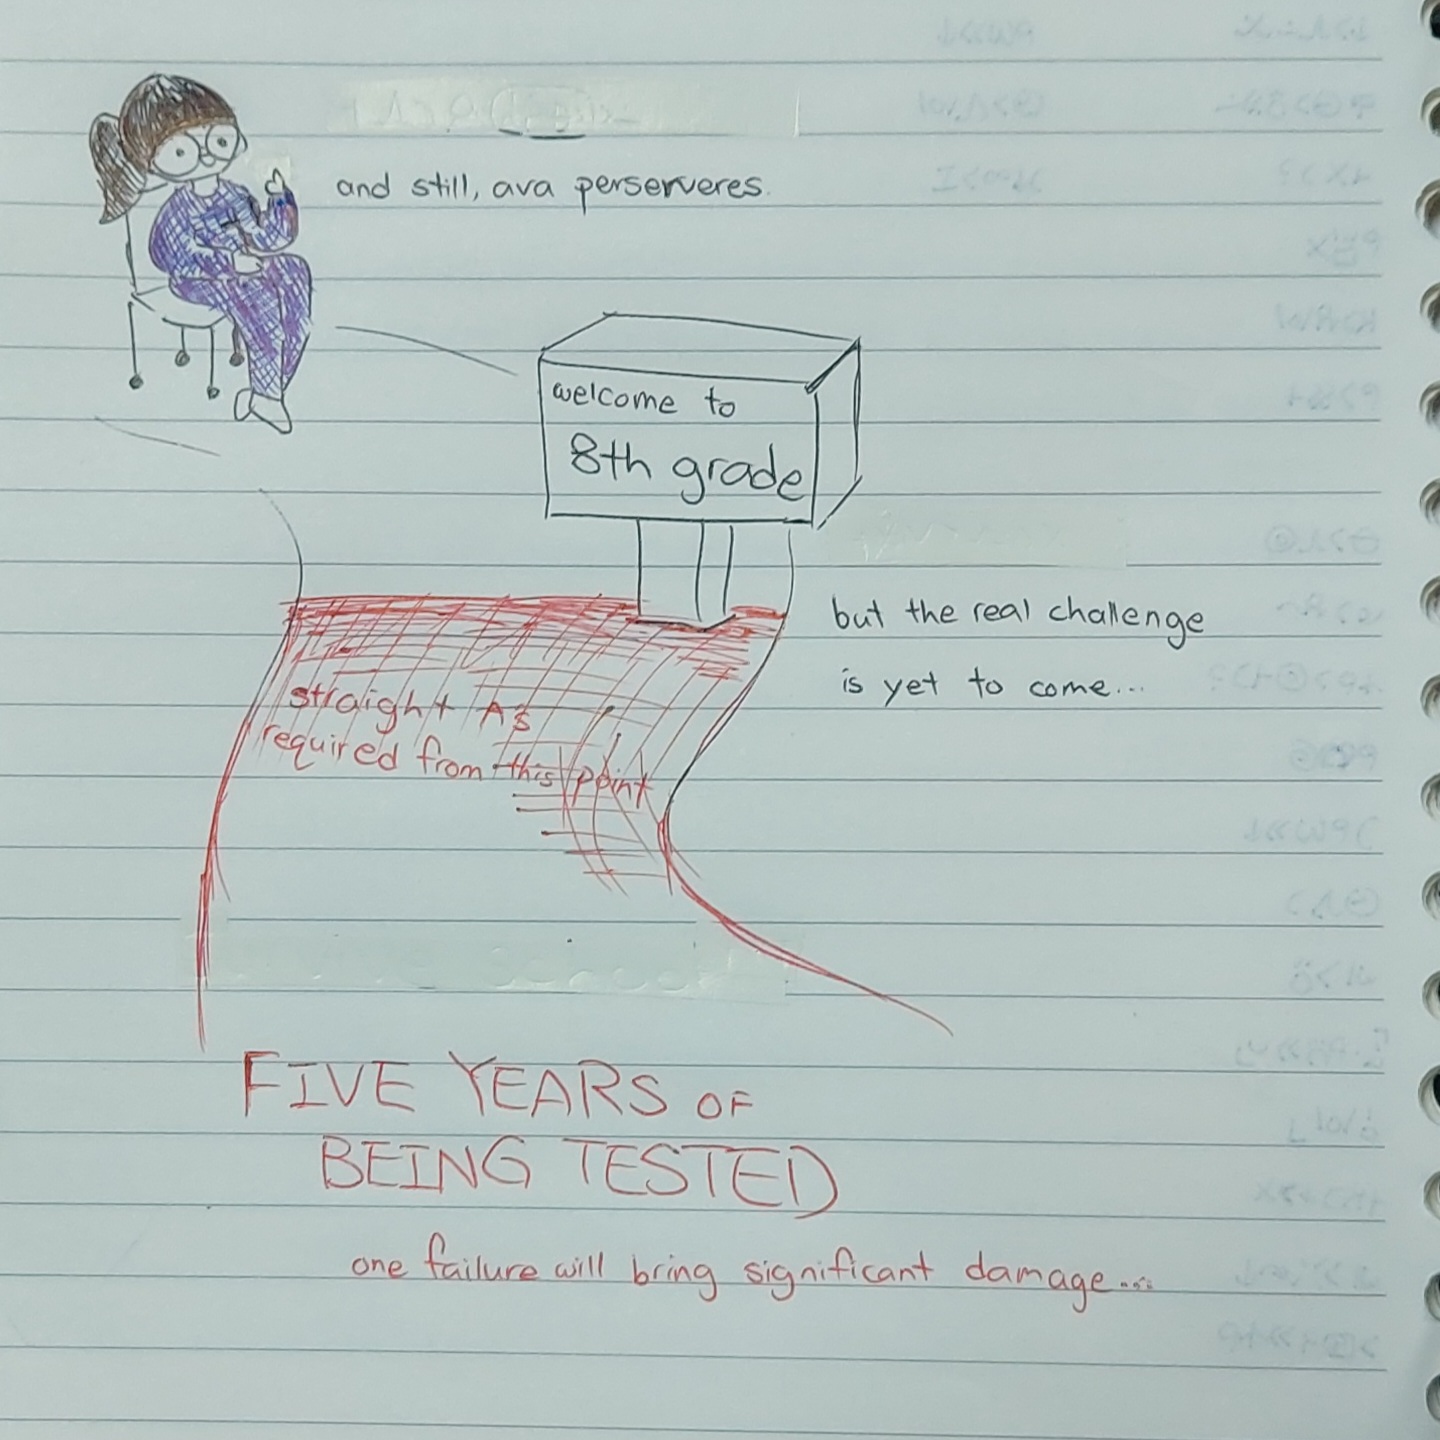 and still, ava perserveres.
welcome to
8th grade
but the real challenge
is yet to come...
straight As
required from this point
FIVE YEARS OF
BEING TESTED
one failure will bring significant damage....